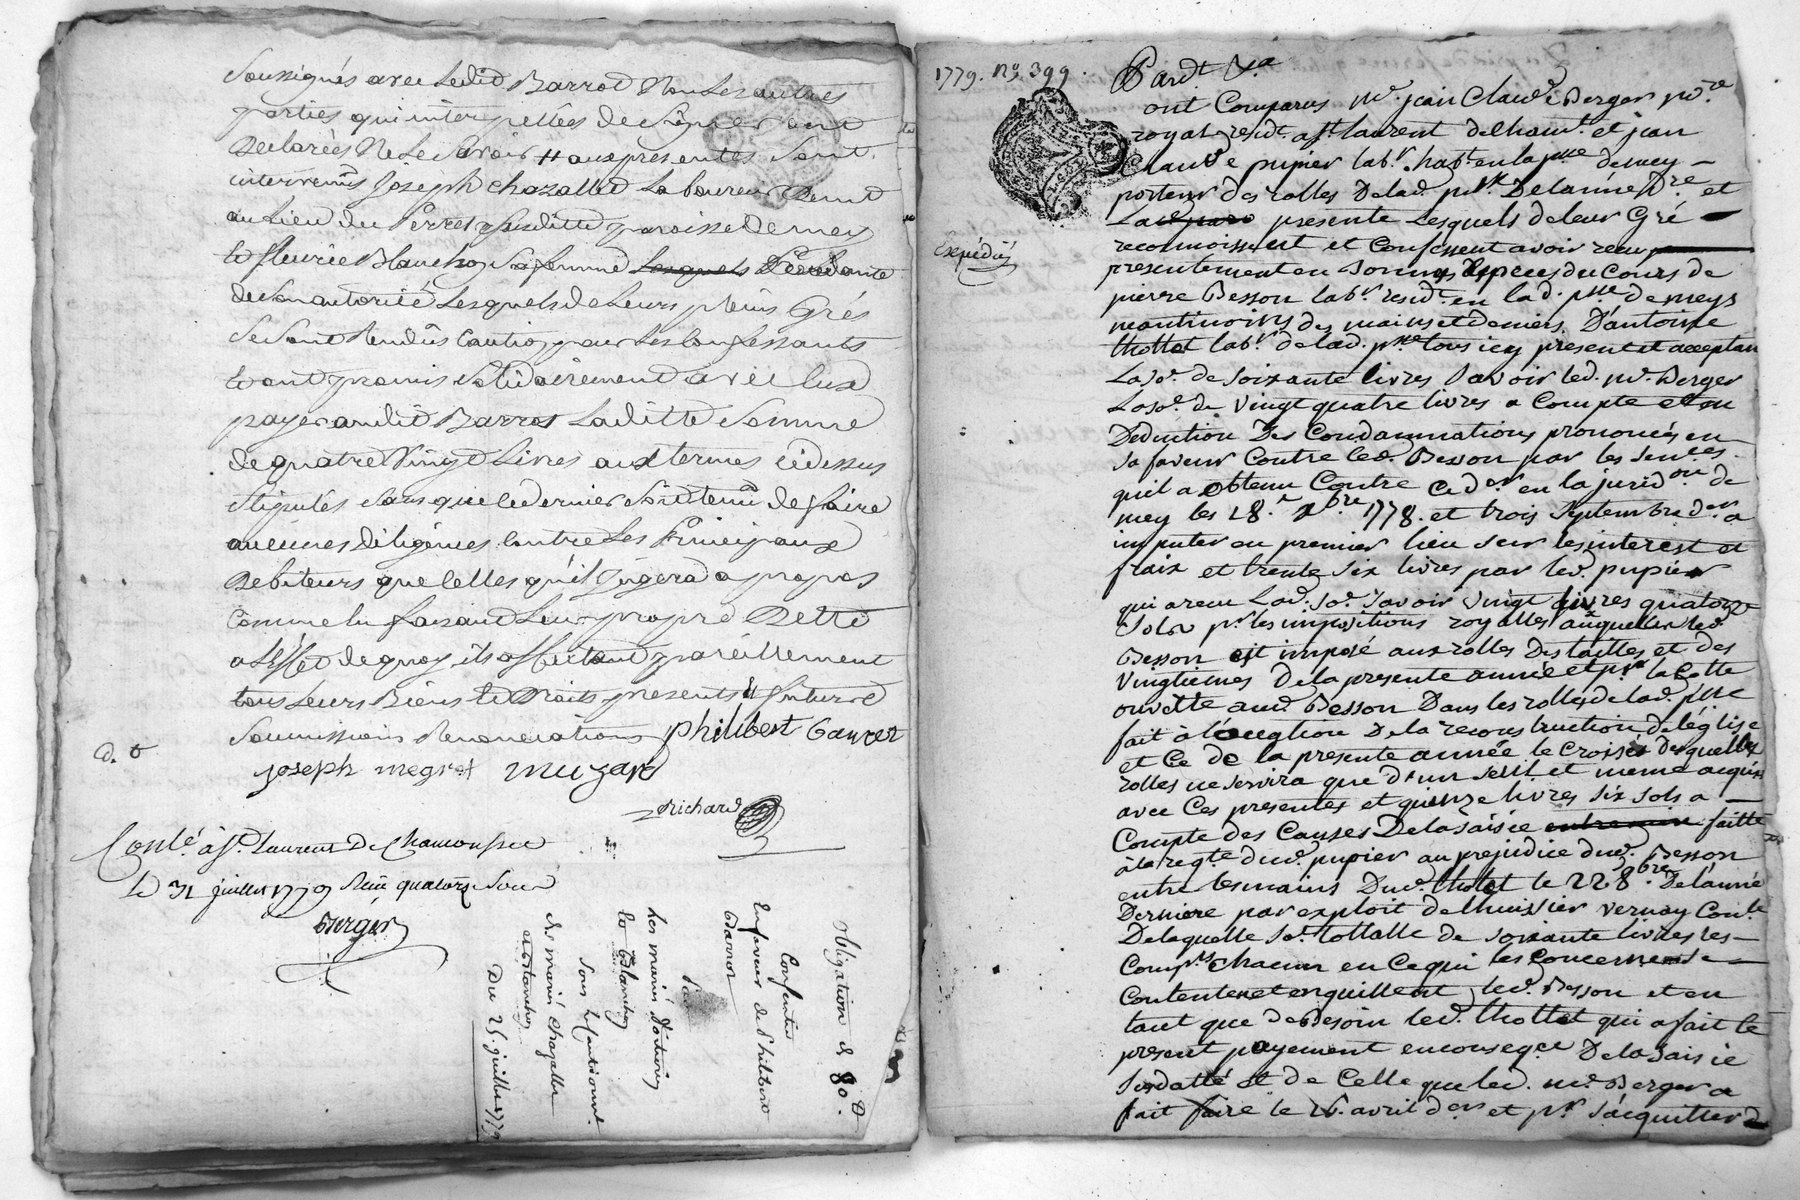 soussignés avec ledit Barrot Non les autres
parties qui interpellées de signer ont
Declarées Ne le savoir # aux presentes sont
intervenus Joseph chazallet Laboureur Demt
au Lieu du Perret susditte paroisse De mey
et fleurie Blanchon sa femme lesquels Procedante
de son autorité Lesquels de Leurs pleins Grés
se sont Rendus Caution pour Les Confessants
et ont promis solidairement avec Eux
payer audit Barrot Laditte Somme
de quatre Vingt Livres aux termes cidessus
stipulés sans que ce dernier soit tenu de faire
aucunes diligences Contre Les Principaux
Debiteurs que celles qu'il Jugera a propos
Comme En faisant Leur propre Dette
a L'effet de quoy ils affectent pareillement
tous Leurs Biens et Droits presents & futurs
Soumissions Renonciations philibert Garret
joseph megret muzard
Richard
Conlé à St. Laurent De Chamousset
le 31 juillet 1779 Reçu quatorze sous
Berger
obligation de 80 tt
Consentie
En faveur de Philibert
Barrot
Par
Les mariés
et Blanchon
sous le Cautionnt.
des mariés chazallet
et blanchon
Du 25. juillet 1779
1779. No. 399.
Expédiée
Pardt. Va
ont Comparus me. jean Claude Berger nore
royal residt. a st laurent de Chamt. et jean
Claude pupier labr. habt en la psse demey
porteur des rolles De lad. psse De l'année Dre et
La presente Lesquels de leur Gré
reconnoissent et Confessent avoir recu
presentement en bonnes Especes du Cours de
pierre Besson labr. residt. en lad. psse de meys
neantmoins des mains et deniers D'antoine
thollot labr. de lad. psse tous icy present et acceptant
La so. de soixante livres savoir led. me. Berger
La so. de vingt quatre livres a Compte et en
Deduction Des Condamnations prononcés en
sa faveur Contre led. Besson par les sences
qu'il a obtenu Contre ce der en la juridon de
mey les 28. xbre 1778. et trois septembre der a
imputer en premier lieu sur les interest et
fraix et trente six livres par led. pupier
qui a recu Lad. so. savoir vingt livres quatorze
sols pr. les impositions royalles auxquelles led.
Besson est imposé aux rolles Des tailles et des
vingtiemes De la presente année et pr. la Cotte
ouverte aud. Besson Dans les rolles de lad. psse
fait à l'occasion De la reconstruction de l'église
et Ce de la presente année le Croisé desquelles
rolles ne servira que d'un seul et meme acquis
avec Ces presentes et quinze livres six sols a
Compte des Causes De la saisie faitte
à la reqte dud. pupier au prejudice dud. Besson
entre les mains Dud. thollot le 22 8bre De l'année
Derniere par exploit de l'huissier vernay Conlé
De laquelle so. tottalle de soixante livres les
Compts chacun en Ce qui les Concerne se
Contentent et en quittent led. Besson et en
tant que de Besoin led. thollot qui a fait le
present payement en conseqce De la saisie
susdatte et de Celle que led. me. Berger a
fait faire le 26. avril der et pr. s'acquitter de